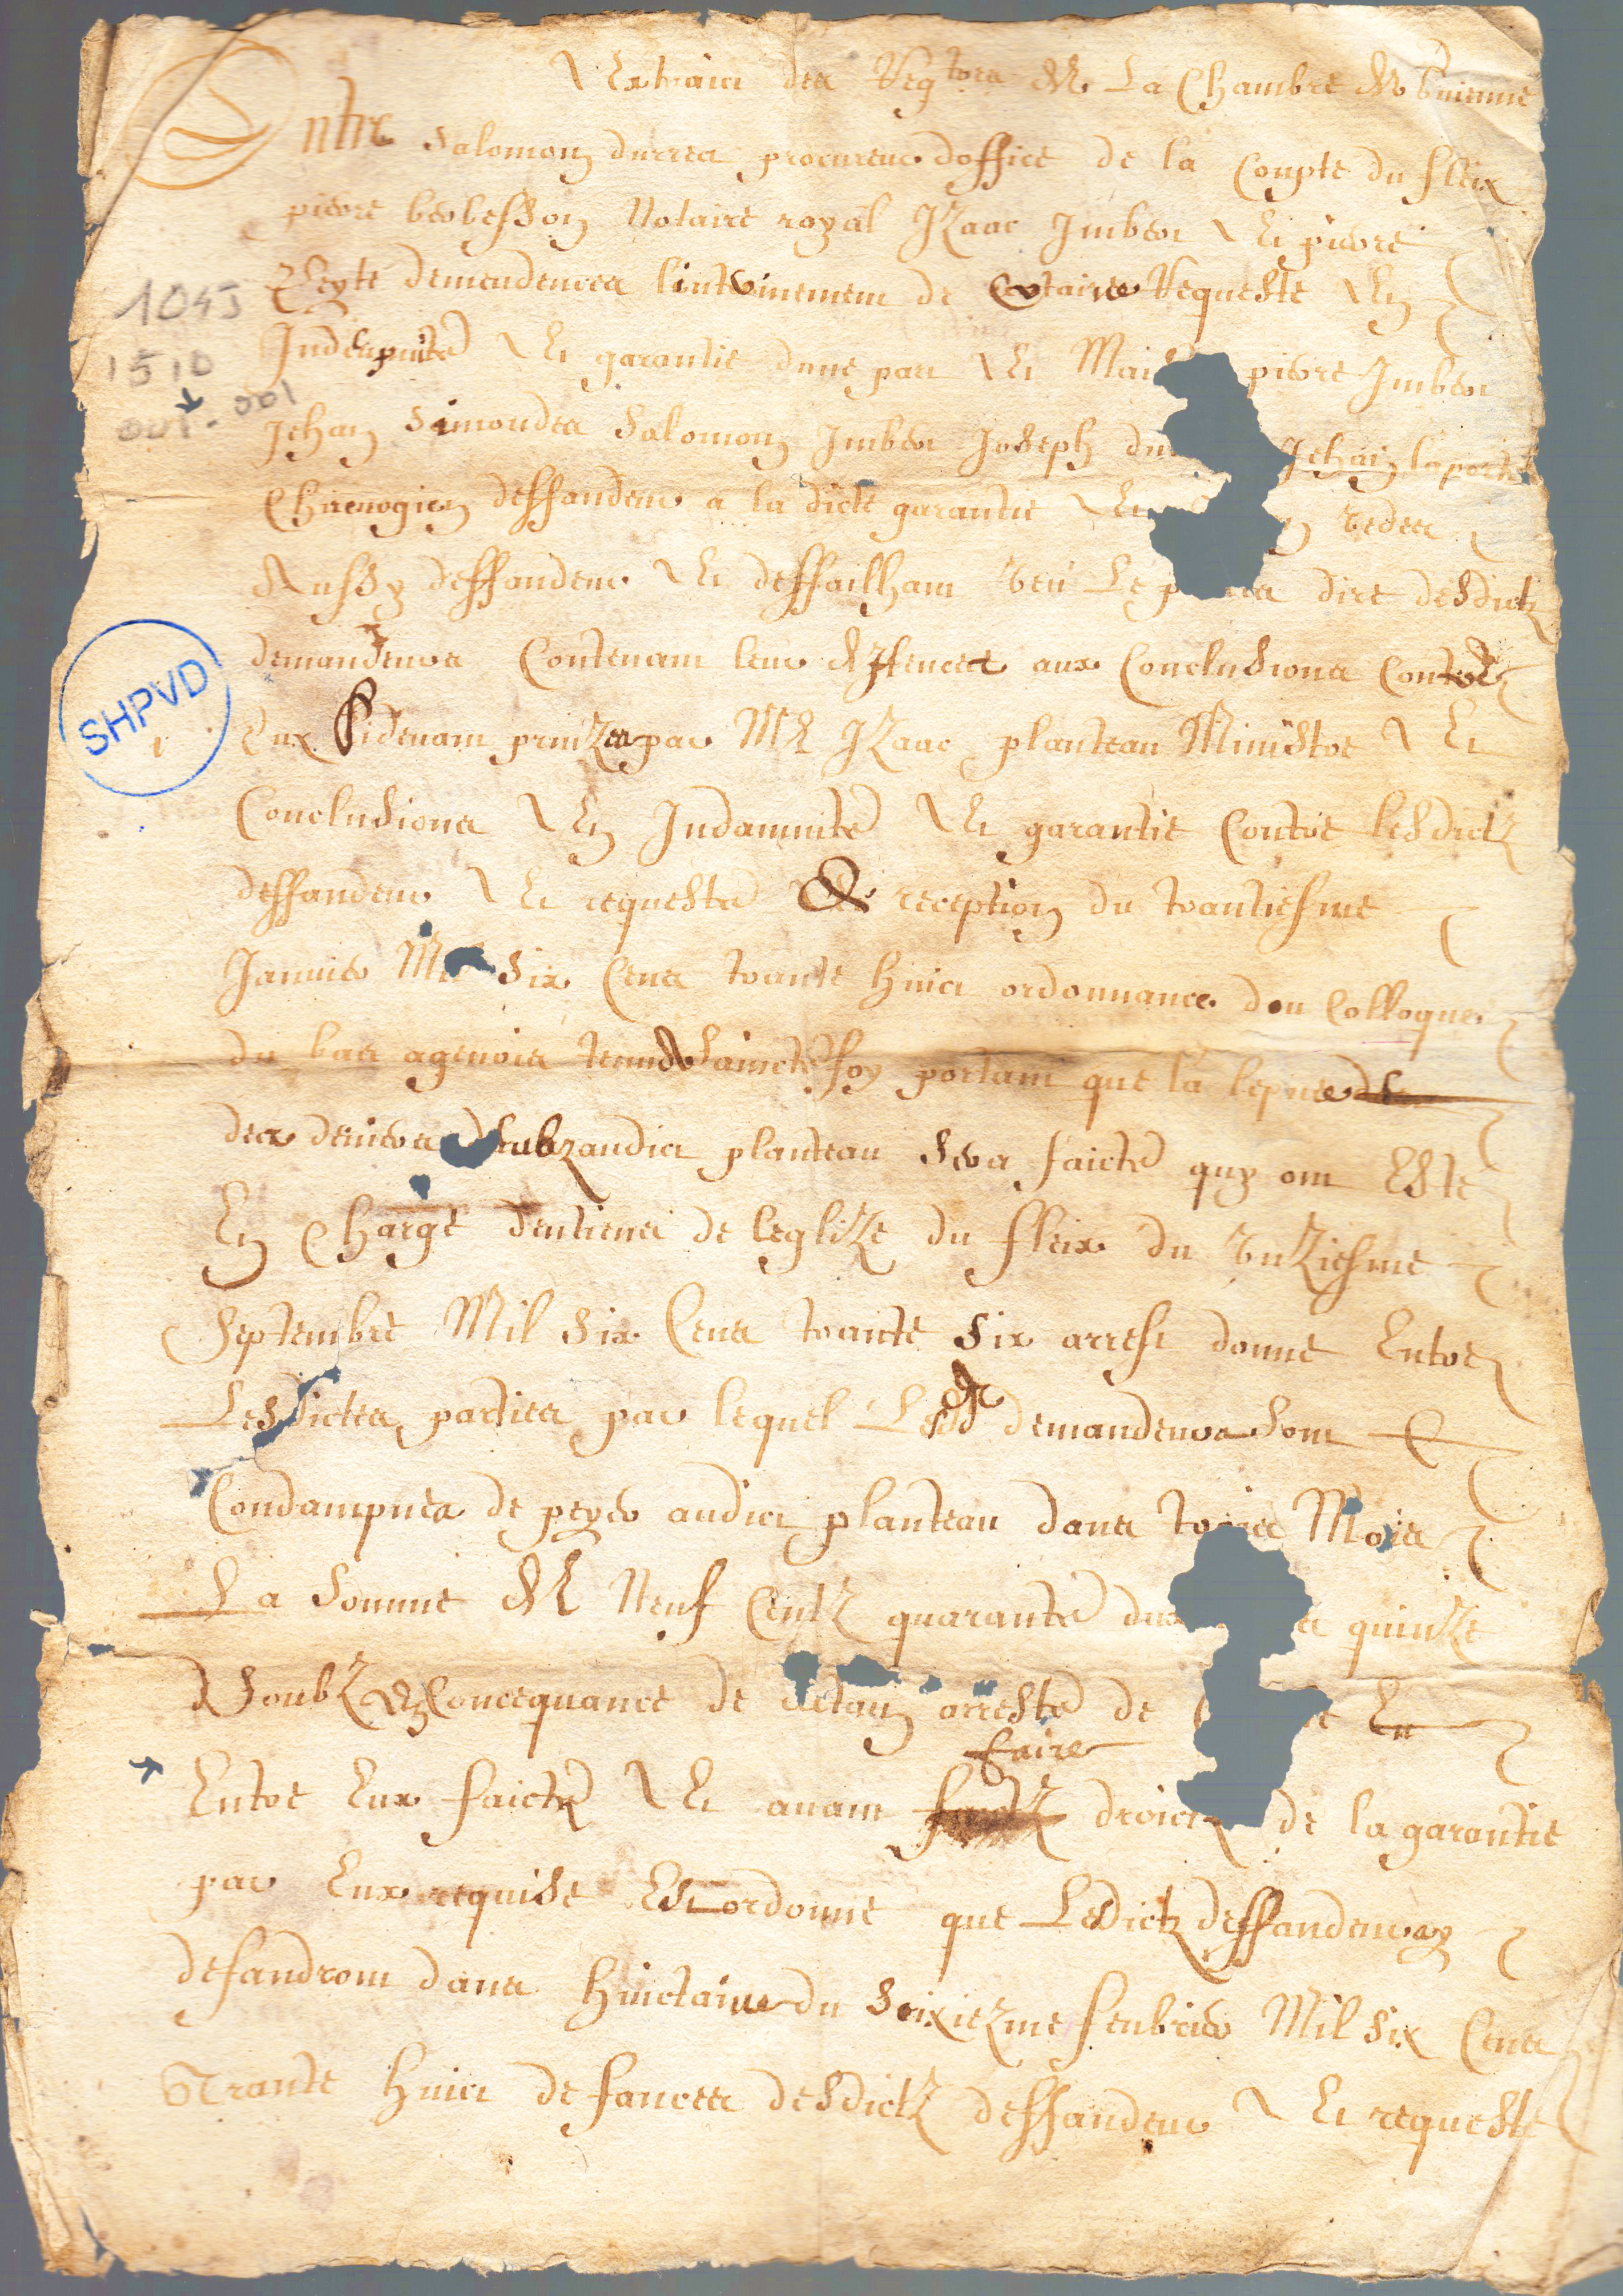 Extraict des Regtres de La Chambre de Guienne
Entre Salomon durrea procureur doffice de la Compte du fleix
pierre berbesson Notaire royal Izaac Imbert Et pierre
Zeyte demendeurs lintherinement de Certaine Requeste En
Indempnite Et garantie dune part Et pierre Imbert
Jehan Simondes Salomon Imbert Joseph Jehan laporte
Chirurogien deffandeur a la dicte garantie Et redes
Aussy deffandeur Et deffailhant Veu Le dire desdictz
demandeurs Contenant leur deffences aux Conclusions Contre
Eux Sidevant prinzes par Me Izaac planteau Ministre Et
Conclusions En Indamnite Et garantie Contre lesdictz
deffandeur Et requeste de reception du trantiesme
Janvier Mil Six Cens trante huict ordonnance dou Colloque
du bas agenois tenu a Saincte foy portant que la lepvee
des deniers deubz audict planteau sera faicte quy ont Este
En Charge dentiens de leglize du fleix du Vnziesme
Septembre Mil Six Cens trante Six arrest donne Entre
Lesdictes parties par lequel Lesd demandeurs Sont
Condampnes de peyer audict planteau dans trois Mois
La Somme de Neuf Centz quarante quinze
Soubz En Concequance de arreste de
faire
Entre Eux faictz Et avant droict de la garantie
par Eux requise Est ordonne que Lesdictz deffandeurs y
defandront dans huictaine du Seixiezme feubrier Mil Six Cens
Trante huict defances desdictz deffandeur Et requeste
1045
1510
001
SHPVD